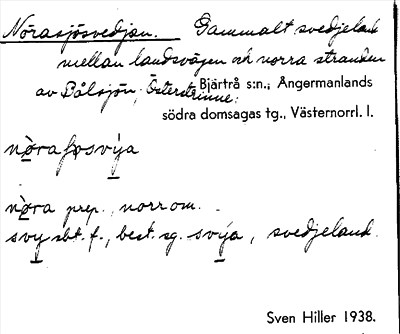 Norasjösvedjan. Gammalt svedjeland
mellan landsvägen och norra stranden
av Pålsjön, Österstrinne;
Bjärtrå s:n.; Ångermanlands
södra domsagas tg., Västernorrl. l.
nòra prep., norr om.
svy sbt. f., best. sg. svýa, svedjeland.
Sven Hiller 1938.